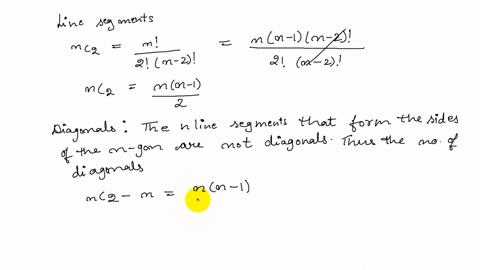 Line segments
nC2 = n! / 2!(n-2)! = n(n-1)(n-2)! / 2! (n-2)!
nC2 = n(n-1) / 2
Diagonals: The n line segments that form the sides
of the n-gon are not diagonals. Thus the no. of
diagonals
nC2 - n = n(n-1)